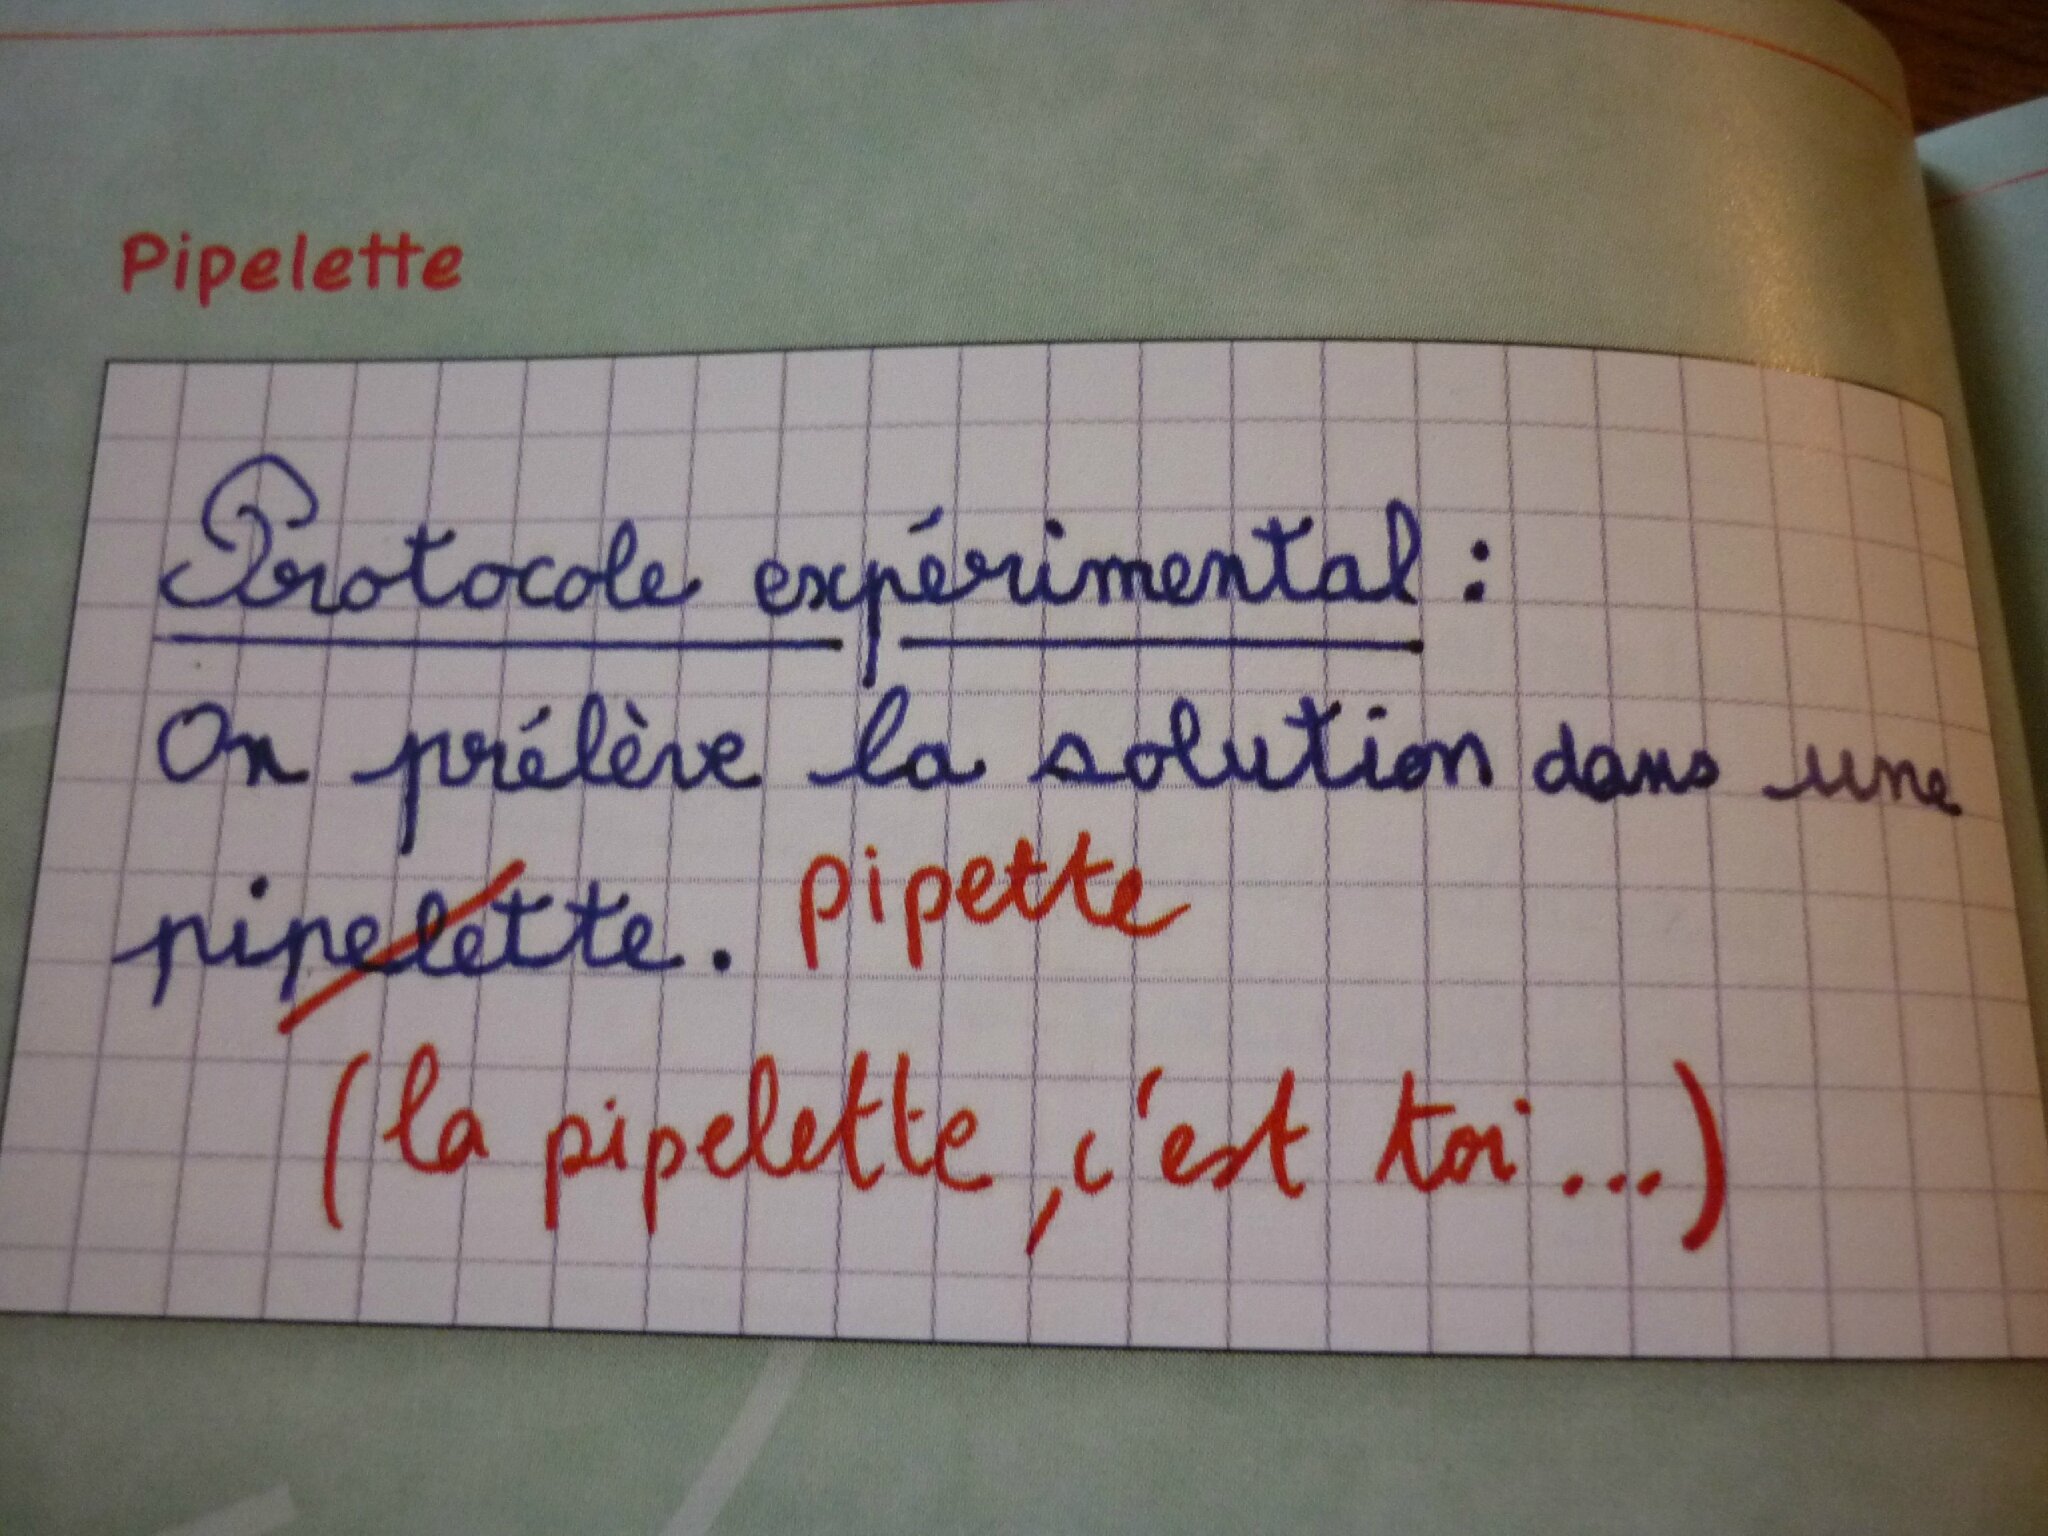 Pipelette
Protocole expérimental :
On prélève la solution dans une
pipelette. pipette
(la pipelette, c'est toi ...)